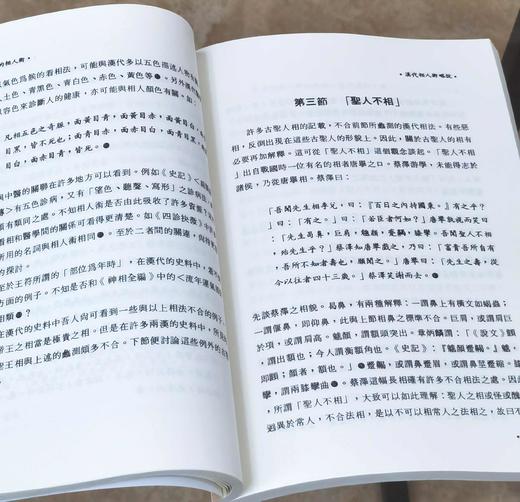 的相人術·
氣色為候的看相法,可能與漢代多以五色描述人
土色、青黑色、青白色、赤色、黃色等●。另外漢
容色來診斷人的健康,亦可能與人相顏色有關。如
凡相五色之奇脈,面黃目青,面黃目赤,面黃目
目黑,皆不死也;面青目赤,面赤目白,面青目
目白,面赤目青,皆死。●
與中醫的關聯在許多地方可以看到。例如《史記》<
傳>有五色診病,又有「望色、聽聲、寫形」之診病
頗有類同之處。不知相人術是否由此吸收了許多資
看相和醫學間的關係可看得更清楚。如《四診抉微》
所用的名詞與相人術相同●。至於二者間的關連,
的探討。
至於王符所謂的「部位為年時」,在漢代的史料中,
方面的例子。不知是否和《神相全編》中的<流年運
在漢代的史料中吾人尚可看到一些與以上相法不合的例子。
帝王之相當是極貴之相。但是在許多兩漢的史料中,所
帝王之相與上述的蠡測頗多不合。下節便討論這些例外的
?
·漢代相人術蠡說·
第三節 「聖人不相」
許多古聖人相的記載,不合前節所蠡測的漢代相法。有些惡
相,反倒出現在這些古聖人的形貌上。因此,關於古聖人的相有
必要再加解釋。這可從「聖人不相」這個觀念談起。「聖人不相
」出自戰國時一位有名的相者唐擧之口。蔡澤游學,未能得志於
諸侯,乃從唐擧相。蔡澤曰:
「吾聞先生相李兌,曰:『百日之內持國秉。』有之乎?
」曰:「有之。」曰:「若臣者何如?」唐擧孰視而笑曰
:「先生曷鼻,巨肩,魋顏,蹙齃,膝攣。吾聞聖人不相
,殆先生乎?」蔡澤知唐擧戲之,乃曰:「富貴吾所自有
,吾所不知者壽也,願聞之。」唐擧曰:「先生之壽,從
今以往者四十三歲。」蔡澤笑謝而去。●
先談蔡澤之相貌。曷鼻,有兩種解釋:一謂鼻上有橫文如蝎蟲;
一謂偃鼻,即仰鼻,此與上節相鼻之標準不合。巨肩,或謂肩巨
於項,或謂肩高。魋顏,謂額頭突出。章炳麟謂:「《說文》顏
,謂出額也;今人謂衡額角也。《史記》:『魋顏蹙齃。』魋,
即顀;顏者,額也。」●蹙齃,或謂鼻蹙眉,或謂鼻莖蹙縮。膝
攣,謂兩膝攣曲●。蔡澤這幅長相確有許多不合相法之處。因此
,所謂「聖人不相」,大致可以如此理解:聖人之相或怪或醜
迥異於常人,不合法相,是以不可以相常人之法相之,故曰不